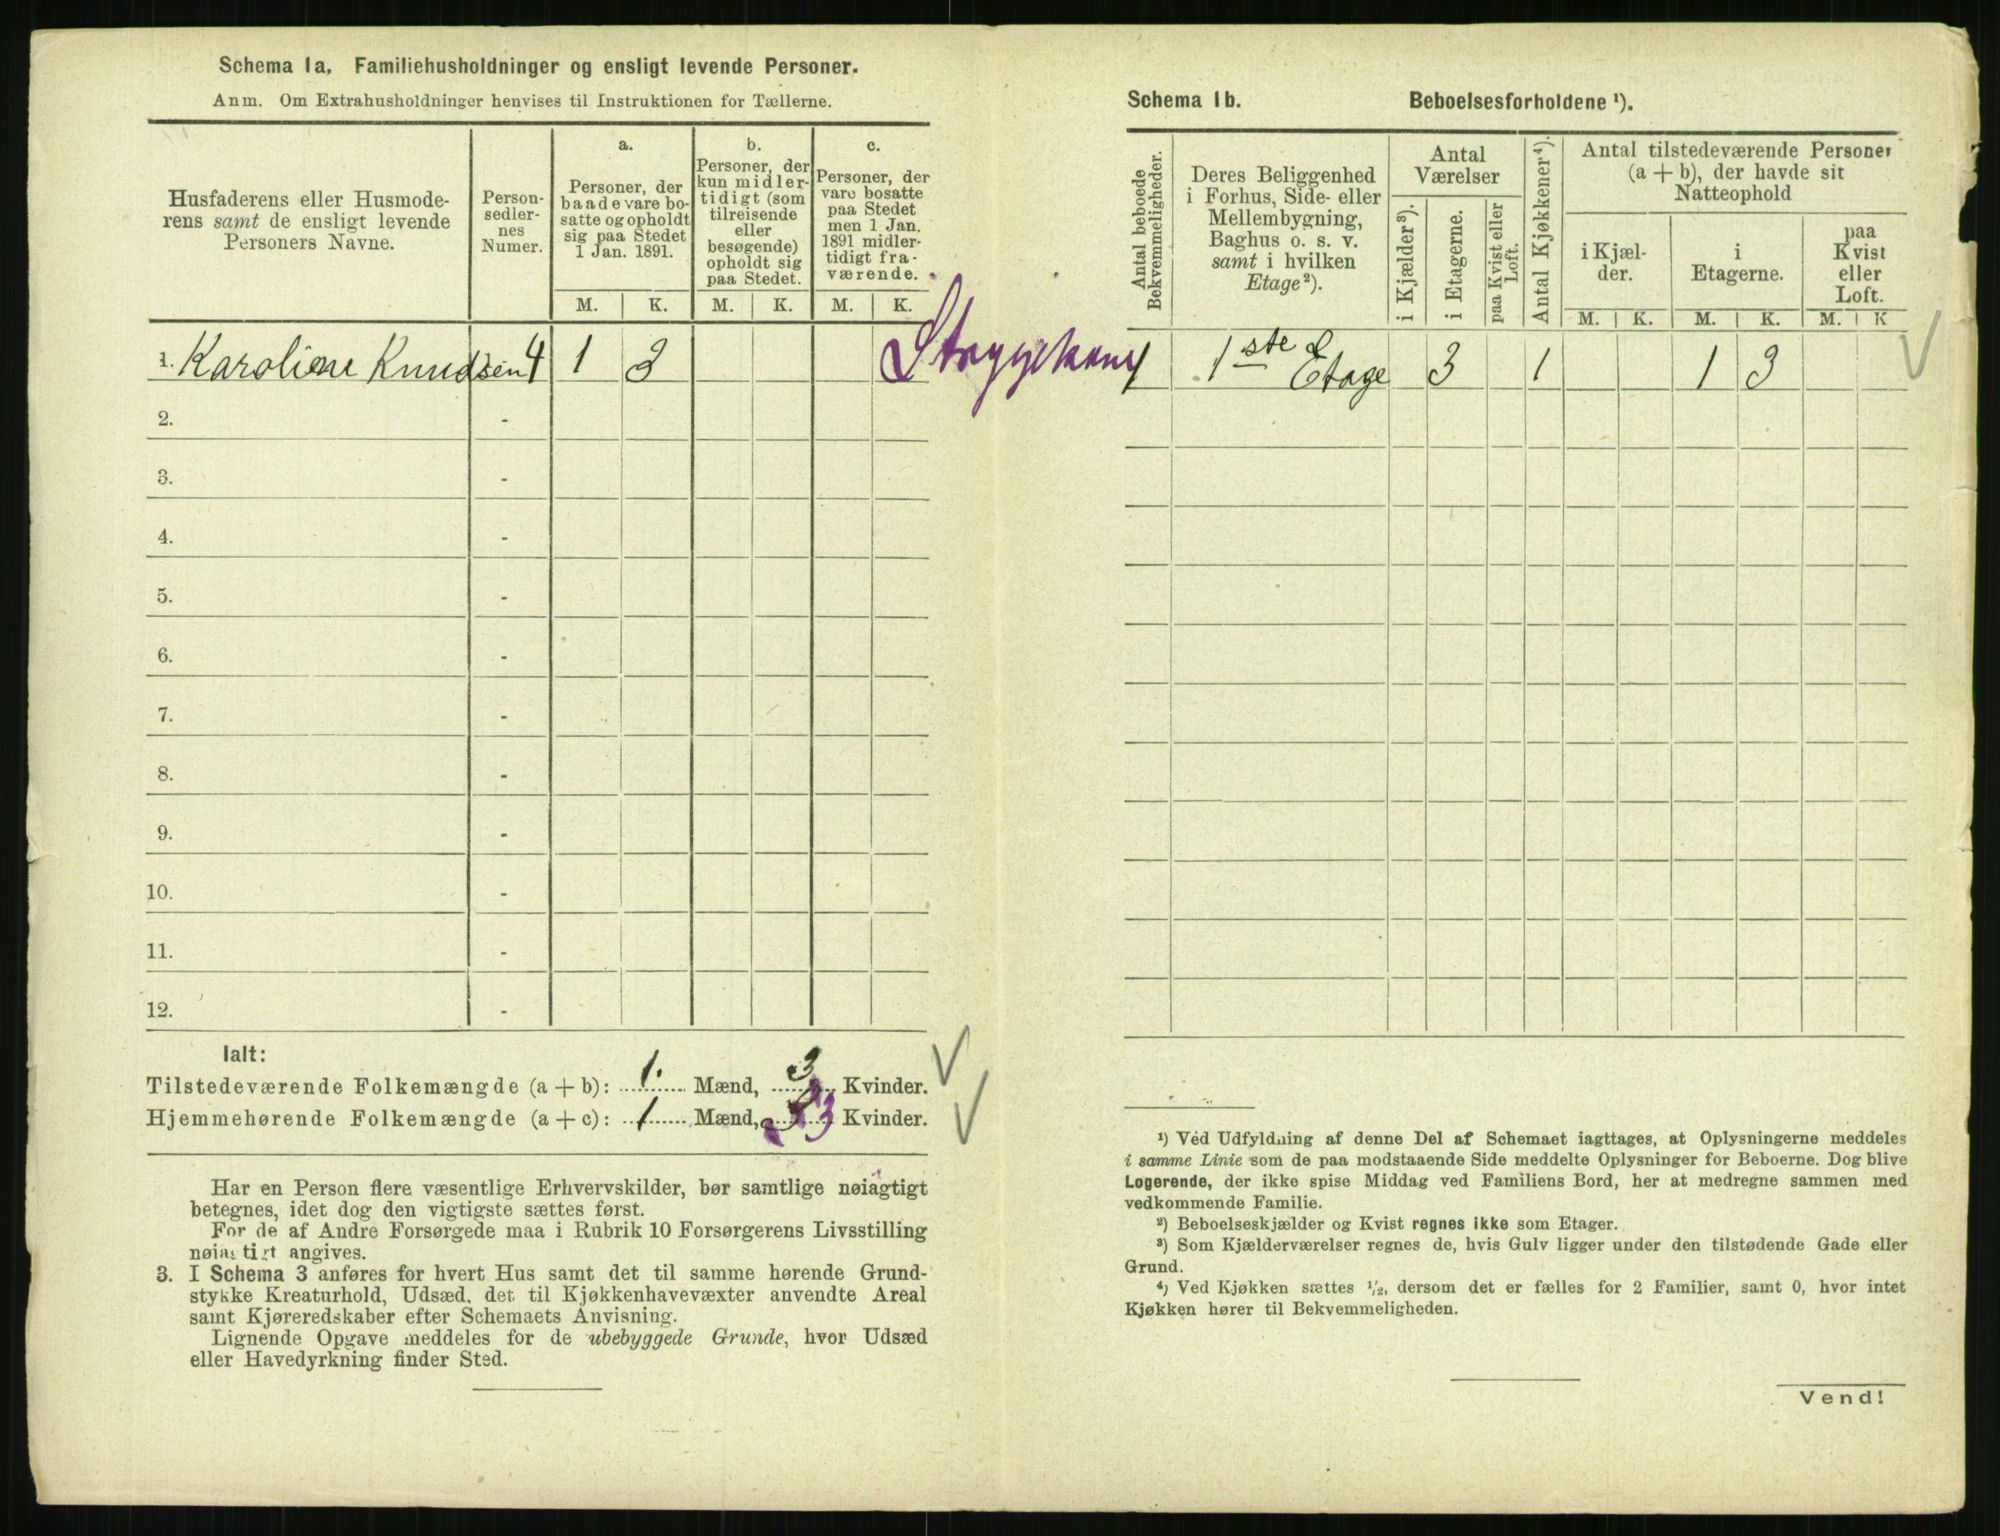 Schema 1a. Familiehusholdninger og ensligt levende Personer.
Anm. Om Extrahusholdninger henvises til Instruktionen for Tællerne.
Husfaderens eller Husmode-
rens samt de ensligt levende
Personers Navne.
Person-
sedler-
nes
Numer.
a.
Personer, der
baade vare bo-
satte og opholdt
sig paa Stedet
1 Jan. 1891.
b.
Personer, der
kun midler-
tidigt (som
tilreisende
eller
besøgende)
opholdt sig
paa Stedet.
c.
Personer, der
vare bosatte
paa Stedet
men 1 Jan.
1891 midler-
tidigt fra-
værende.
M. K. M. K. M. K.
1. Karoline Knudsen 4 1 3
2. -
3. -
4. -
5. -
6. -
7. -
8. -
9. -
10. -
11. -
12. -
Ialt:
Tilstedeværende Folkemængde (a + b): 1 Mænd, 3 Kvinder.
Hjemmehørende Folkemængde (a + c): 1 Mænd, 3 Kvinder.
Har en Person flere væsentlige Erhvervskilder, bør samtlige nøiagtigt
betegnes, idet dog den vigtigste sættes først.
For de af Andre Forsørgede maa i Rubrik 10 Forsørgerens Livsstilling
nøiagtigt angives.
3. I Schema 3 anføres for hvert Hus samt det til samme hørende Grund-
stykke Kreaturhold, Udsæd, det til Kjøkkenhavevæxter anvendte Areal
samt Kjøreredskaber efter Schemaets Anvisning.
Lignende Opgave meddeles for de ubebyggede Grunde, hvor Udsæd
eller Havedyrkning finder Sted.
Schema 1b. Beboelsesforholdene ¹).
Antal beboede
Bekvemmeligheder.
Deres Beliggenhed
i Forhus, Side- eller
Mellembygning,
Baghus o. s. v.
samt i hvilken
Etage ²).
Antal
Værelser
i Kjælder ³).
i Etagerne.
paa Kvist eller
Loft.
Antal Kjøkkener ⁴).
Antal tilstedeværende Personer
(a + b), der havde sit
Natteophold
i Kjæl-
der.
i
Etagerne.
paa
Kvist
eller
Loft.
M. K. M. K. M. K
1 1ste Etage 3 1 1 3
¹) Ved Udfyldning af denne Del af Schemaet iagttages, at Oplysningerne meddeles
i samme Linie som de paa modstaaende Side meddelte Oplysninger for Beboerne. Dog blive
Logerende, der ikke spise Middag ved Familiens Bord, her at medregne sammen med
vedkommende Familie.
²) Beboelseskjælder og Kvist regnes ikke som Etager.
³) Som Kjælderværelser regnes de, hvis Gulv ligger under den tilstødende Gade eller
Grund.
⁴) Ved Kjøkken sættes ½, dersom det er fælles for 2 Familier, samt 0, hvor intet
Kjøkken hører til Bekvemmeligheden.
Vend!